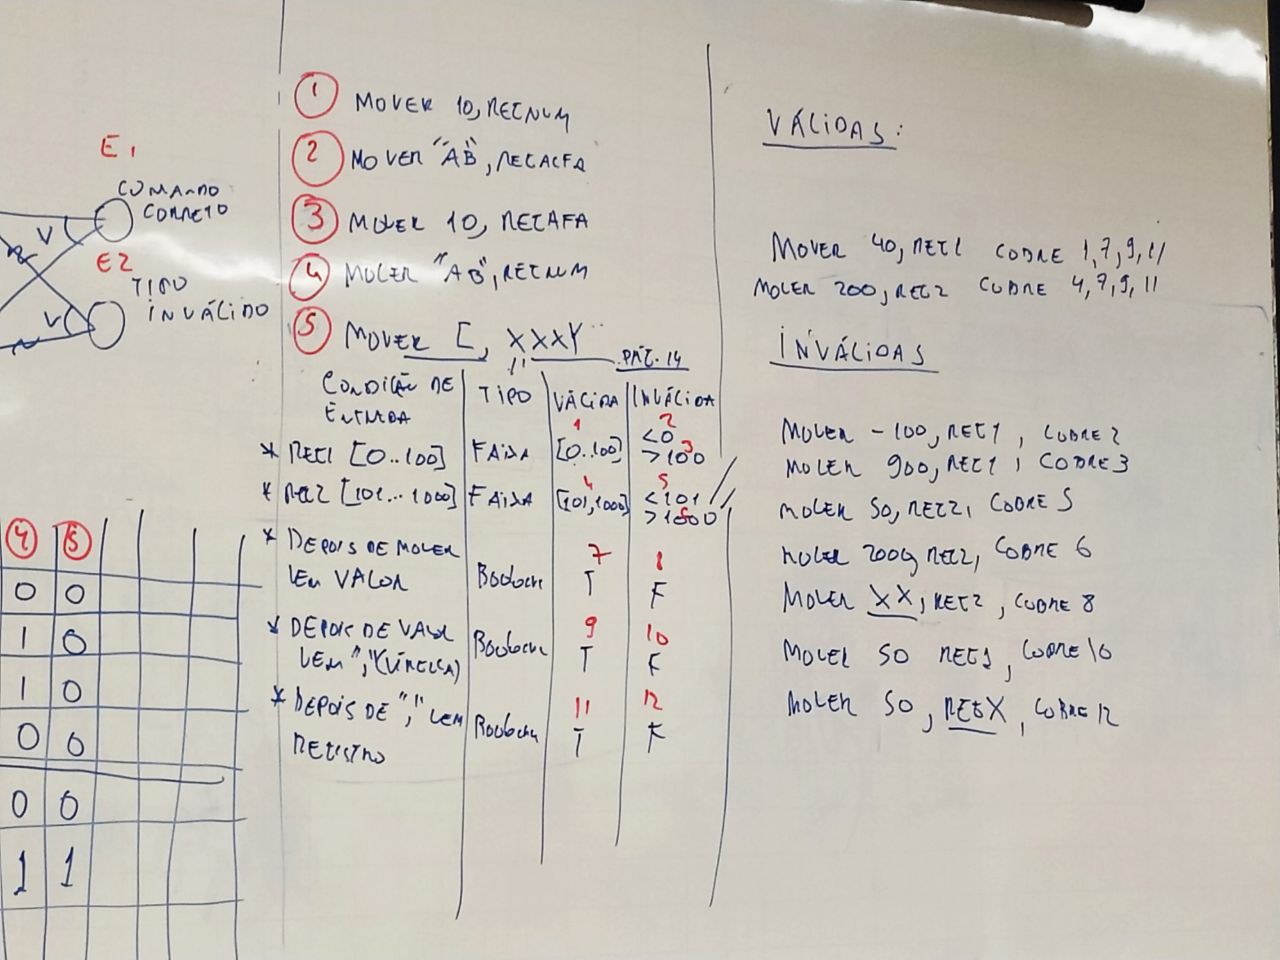 E1
COMANDO
CORRETO
V
E2
TIPO
INVÁLIDO
V
1 MOVER 10, REGNUM
2 MOVER "AB", REGALFA
3 MOVER 10, REGAFA
4 MOVER "AB", REGNUM
5 MOVER [, XXXY
PÁG. 14
CONDIÇÃO DE ENTRADA TIPO VÁLIDA INVÁLIDA
1 2
* REG1 [0..100] FAIXA [0..100] <0
3
>100
4 5
* REG2 [101...1000] FAIXA [101,1000] <101
6
>1000
* DEPOIS DE MOVER 7 8
VEM VALOR Boolean T F
* DEPOIS DE VALOR 9 10
VEM "," (VÍRGULA) Boolean T F
* DEPOIS DE "," VEM 11 12
REGISTRO Boolean T F
VÁLIDAS:
MOVER 40, REG1 COBRE 1, 7, 9, 11
MOVER 200, REG2 COBRE 4, 7, 9, 11
INVÁLIDAS
MOVER -100, REG1, COBRE 2
MOVER 900, REG1, COBRE 3
MOVER 50, REG2, COBRE 5
MOVER 2000, REG2, COBRE 6
MOVER XX, REG2, COBRE 8
MOVER 50 REG1, COBRE 10
MOVER 50, REGX, COBRE 12
4 5
0 0
1 0
1 0
0 0
0 0
1 1